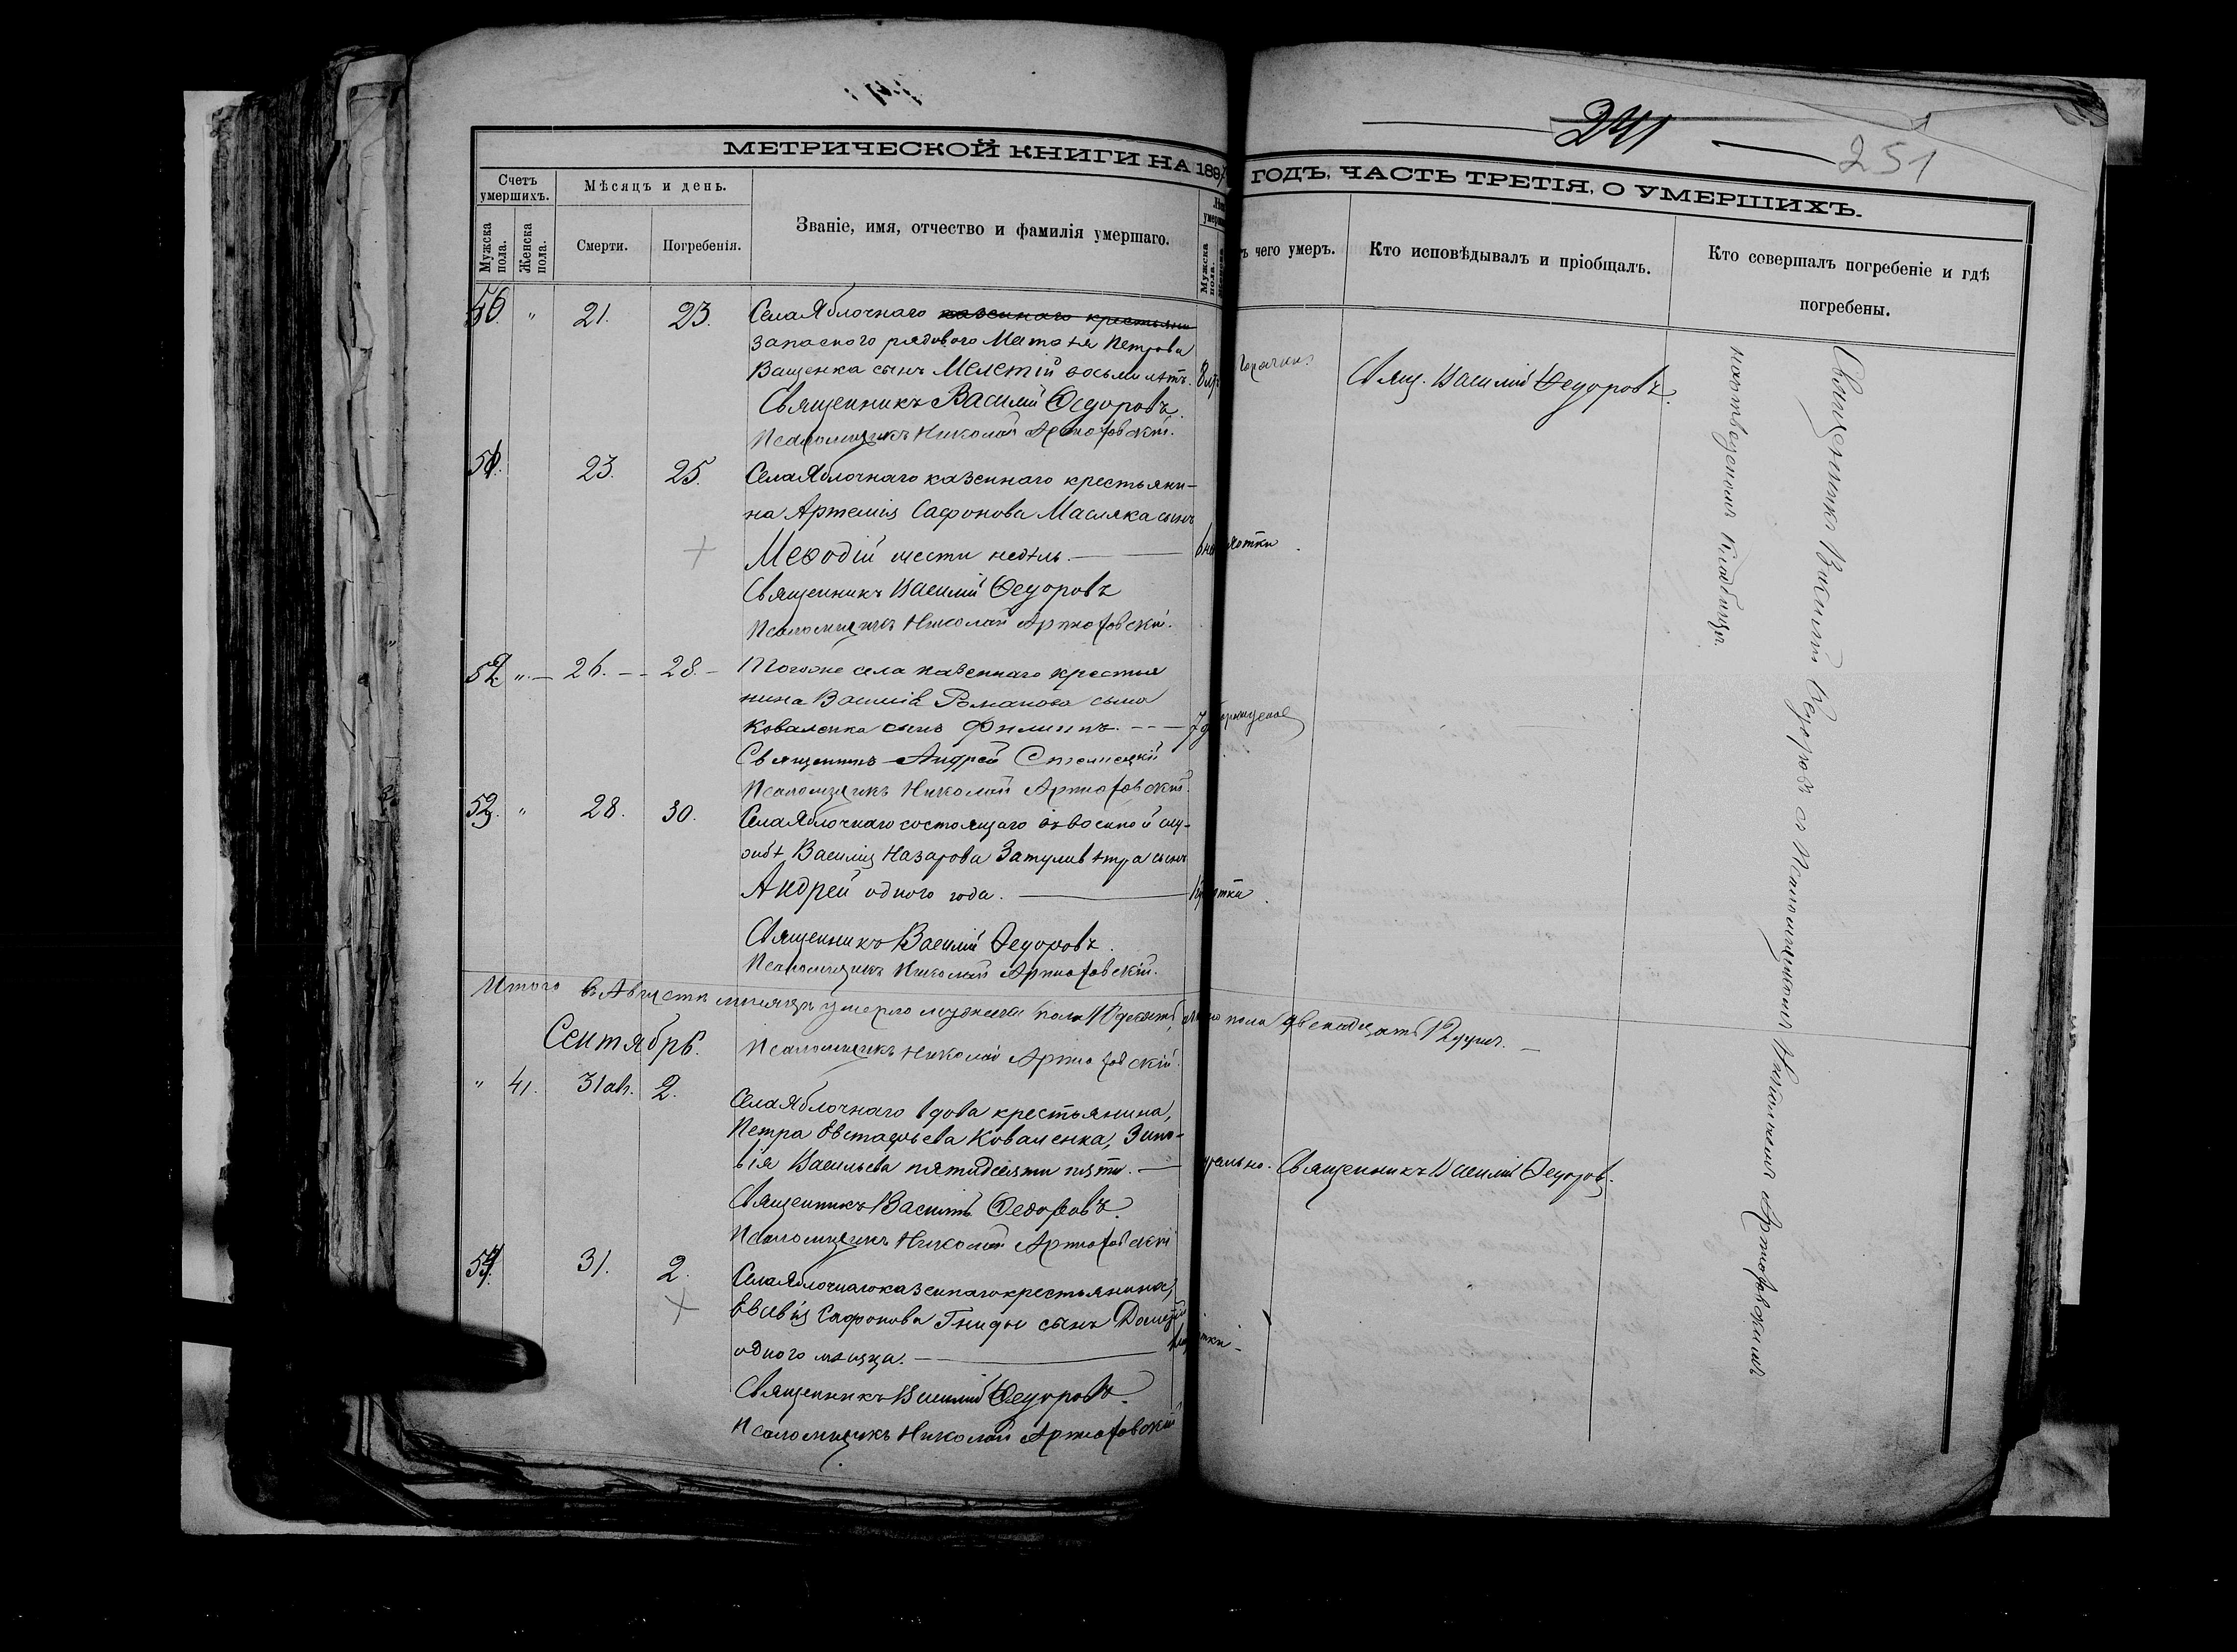 241
251
МЕТРИЧЕСКОЙ КНИГИ НА 189
ГОДЪ, ЧАСТЬ ТРЕТІЯ, О УМЕРШИХЪ.
Счетъ умершихъ.
Мужска пола.
Женска пола.
Мѣсяцъ и день.
Смерти.
Погребенія.
Званіе, имя, отчество и фамилія умершаго.
Мужска пола.
чего умеръ.
Кто исповѣдывалъ и пріобщалъ.
Кто совершалъ погребеніе и гдѣ
погребены.
50 " 21. 23. Села Яблочнаго казеннаго крестьяни
запаснаго рядоваго Петрова
Ващенка сынъ Мелетій восьми лѣтъ. 8 Свящ. Василій Ѳедоровъ.
Священникъ Василій Ѳедоровъ.
Псаломщикъ Николай Артюховскій.
51. 23. 25. Села Яблочнаго казеннаго крестьяни-
на Артемія Сафонова Масляка сынъ
Меѳодій шести недѣль.
Священникъ Василій Ѳедоровъ
Псаломщикъ Николай Артюховскій.
52. " 26. 28. Тогоже села казеннаго крестья
нина Василія Романова сына
Коваленка сынъ Филиппъ.
Священникъ Андрей
Псаломщикъ Николай Артюховскій.
53. " 28. 30. Села Яблочнаго состоящаго въ военной слу-
жбѣ Василія Назарова Затуливѣтра сынъ
Андрей одного года.
Священникъ Василій Ѳедоровъ.
Псаломщикъ Николай Артюховскій.
Итого въ Августѣ мѣсяцѣ умерло мужска пола 10 десять, пола двенадцать 12 душъ.
Сентябрь. Псаломщикъ Николай Артюховскій.
" 41. 31 ав. 2. Села Яблочнаго вдова крестьянина,
Петра Евстафьева Коваленка, Зино-
вія Васильева пятидесяти пяти. Священникъ Василій Ѳедоровъ.
Священникъ Василій Ѳедоровъ.
Псаломщикъ Николай Артюховскій
54. 31. 2. Села Яблочнаго казеннаго крестьянина,
Евсевія Сафонова Гниды сынъ
одного мѣсяца.
Священникъ Василій Ѳедоровъ.
Псаломщикъ Николай Артюховскій
Священникъ Василій Ѳедоровъ съ Псаломщикомъ Николаемъ Артюховскимъ
кладбищѣ.